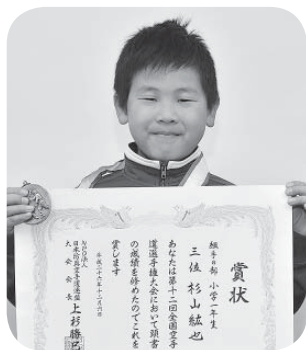 賞状
組手の部 小学一年生
三位 杉山紘也
あなたは第十二回全国空手
道選手権大会において頭書
の成績を修めたのでこれを
賞します
平成二十六年十二月六日
大会会長 上杉勝巳